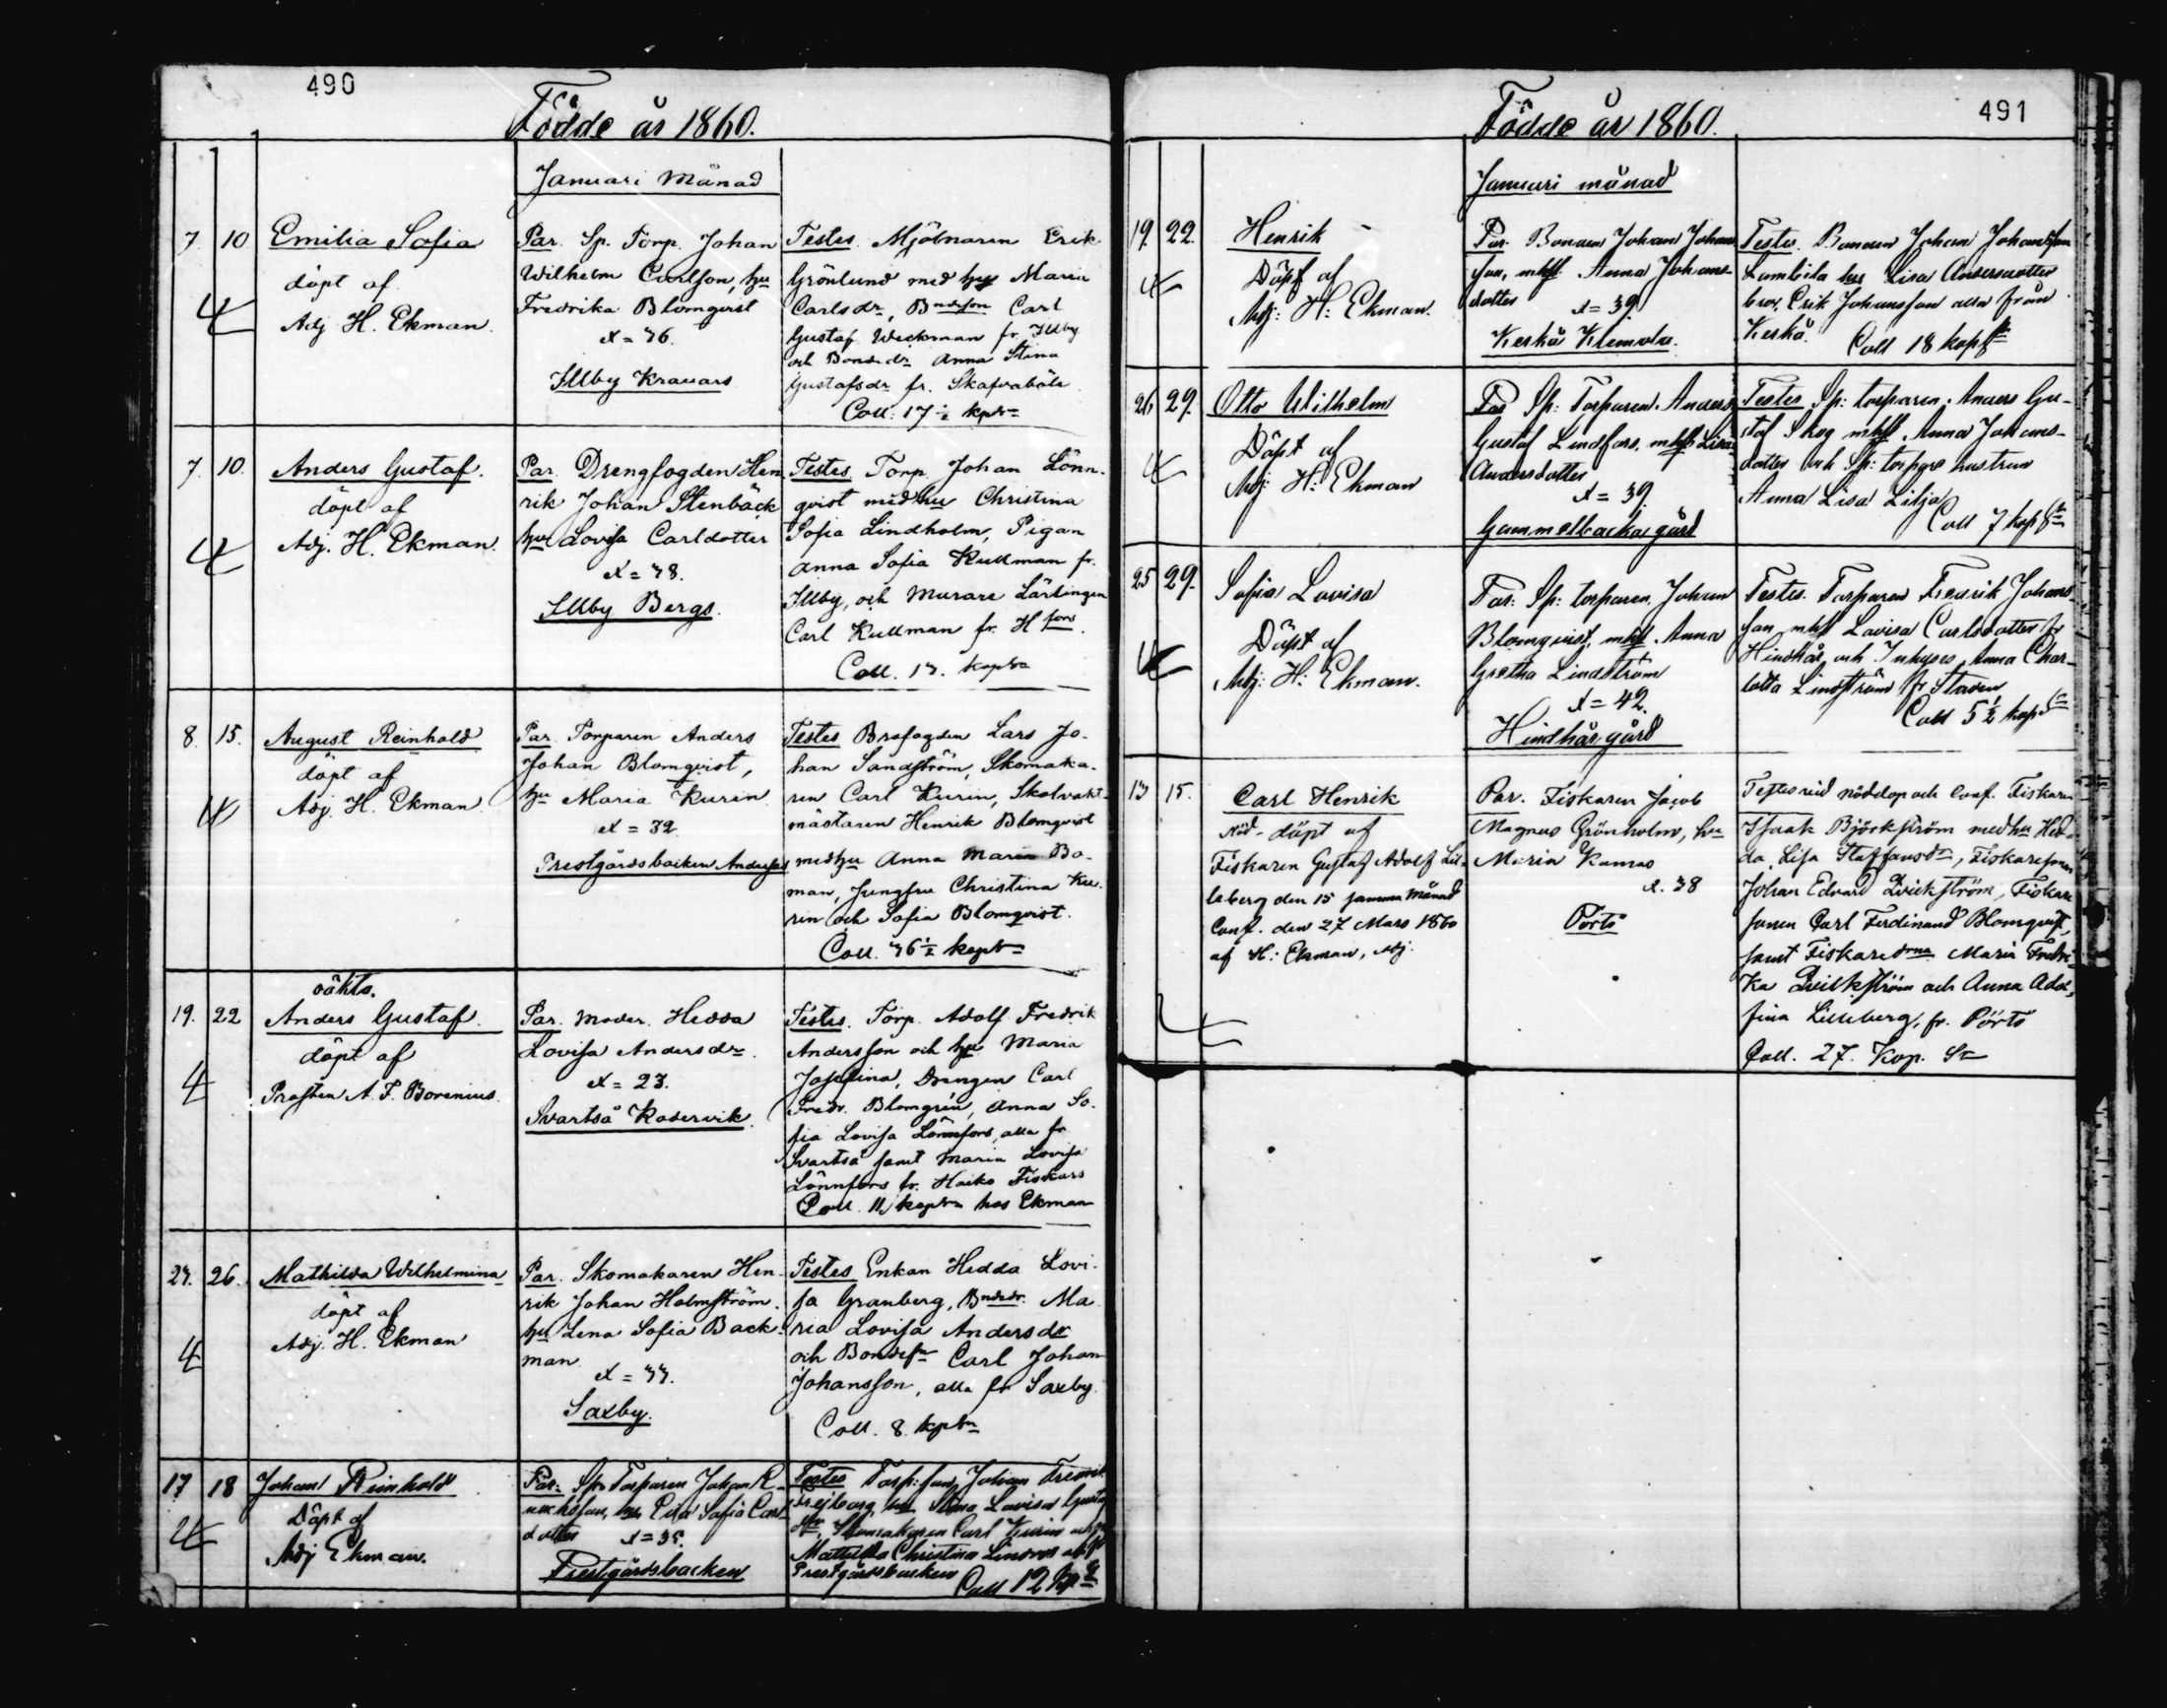 490
Födde år 1860.
Januari Månad
7. 10 Emilia Sofia
döpt af
Adj. H. Ekman.
Par. Sp. Torp. Johan
Wilhelm Carlsson, hu
Fredrika Blomqvist
Illby Krauars
Testes. Mjölnaren Erik
Grönlund med hu Maria
Carlsdr, Bndeson Carl
Gustaf Weckman fr. Illby
och Bondedr Anna Stina
Gustafsdr fr. Skafvaböle
Coll. 17½
7. 10. Anders Gustaf.
döpt af
Adj. H. Ekman.
Par. Drengfogden Hen
rik Johan Stenbäck
hu Lovisa Carldotter
Illby Bergs.
Testes. Torp. Johan Lönn-
qvist med hu Christina
Sofia Lindholm, Pigan
Anna Sofia Kullman fr.
Illby, och Murare Lärlingen
Carl Kullman fr. Hfors.
Coll.
8. 15. August Reinhold
döpt af
Adj. H. Ekman
Par. Torparen Anders
Johan Blomqvist,
hu Maria Kurin
= 32
Prestgårdsbacken
Testes Brofogden Lars Jo-
han Sandström, Skomaka-
ren Carl Kurin, Skolvakt-
mästaren Henrik Blomqvist
med hu Anna Maria Bo-
man, Jungfru Christina Ku-
rin och Sofia Blomqvist.
Coll.
oäkta.
19. 22 Anders Gustaf.
döpt af
Prosten A. F. Borenius.
Par. Moder. Hedda
Lovisa Andersdr.
= 23.
Svartså Kodervik.
Testes. Torp. Adolf Fredrik
Andersson och hu Maria
Josefina, Drengen Carl
Fredr. Blomgrén, Anna So-
fia Lovisa Lönnfors, alla fr.
Svartså samt Maria Lovisa
Lönnfors fr. Haiko Fiskars
Coll. 11 hos Ekman
26. Mathilda Wilhelmina
döpt af
Adj. H. Ekman
Par. Skomakaren Hen-
rik Johan Holmström.
hu Lena Sofia Back-
man.
Saxby.
Testes Enkan Hedda Lovi-
sa Granberg, Bndedr. Ma
ria Lovisa Andersdr
och Bondesn Carl Johan
Johansson, alla fr Saxby.
Coll. 8.
17 18 Johan Reinhold
Döpt af
Adj Ekman.
Par. Sp. Torparen Johan
Sofia Carl
dotter = 35.
Prestgårdsbacken
Testes Johan
Stina Lovisa
Carl Kurin
Mathilda Christina
Prestgårdsbacken Coll 12
491
Födde år 1860.
Januari månad
19. 22. Henrik
Döpt af
Adj: H: Ekman.
Par. Bonden Johan Johans
son, mhst. Anna Johans-
dotter
= 39
Kerkå Klemola.
Testes. Bonden Johan Johansson
hu Lisa Andersdotter
Erik Johansson alla från
Kerkå. Coll 18 kop
26 29. Otto Wilhelm
Döpt af
Adj: H: Ekman
Par Sp: Torparen. Anders
Gustaf Lindfors, mhst Lisa
Andersdotter
= 39.
Gammelbacka gård
Testes Sp: torparen. Anders Gu-
staf Skog mhst. Anna Johans-
dotter och Sp: hustrun
Anna Lisa Lilja
Coll 7 kop
25 29. Sofia Lovisa
Döpt af
Adj: H: Ekman.
Par: Sp: torparen. Johan
Blomqvist, mhst. Anna
Gretha Lindström
= 42.
Hindhår gård
Testes. Torparen Fredrik Johans-
son mhst Lovisa Carlsdotter fr
Hindhår, och Inhyses Anna Char-
lotta Lindström fr Staden
Coll 5½ kop
13 15. Carl Henrik
Nöd-döpt af
Fiskaren Gustaf Adolf Lil-
leberg den 15 samma Månad
Conf. den 27 Mars 1860
af H: Ekman, Adj.
Par. Fiskaren Jacob
Magnus Grönholm, hu
Maria
38
Pörtö
Testes vid nöddop och Conf. Fiskaren
Isaak Björkström med hu Hed-
da Lisa Staffansdr, Fiskaresonen
Johan Edvard Dvickström, Fiskare
sonen Carl Ferdinand Blomqvist,
samt Fiskaredrna Maria Fredri-
ka och Anna Adol-
fina Lilleberg, fr. Pörtö
Coll. 27. Kop. Sr